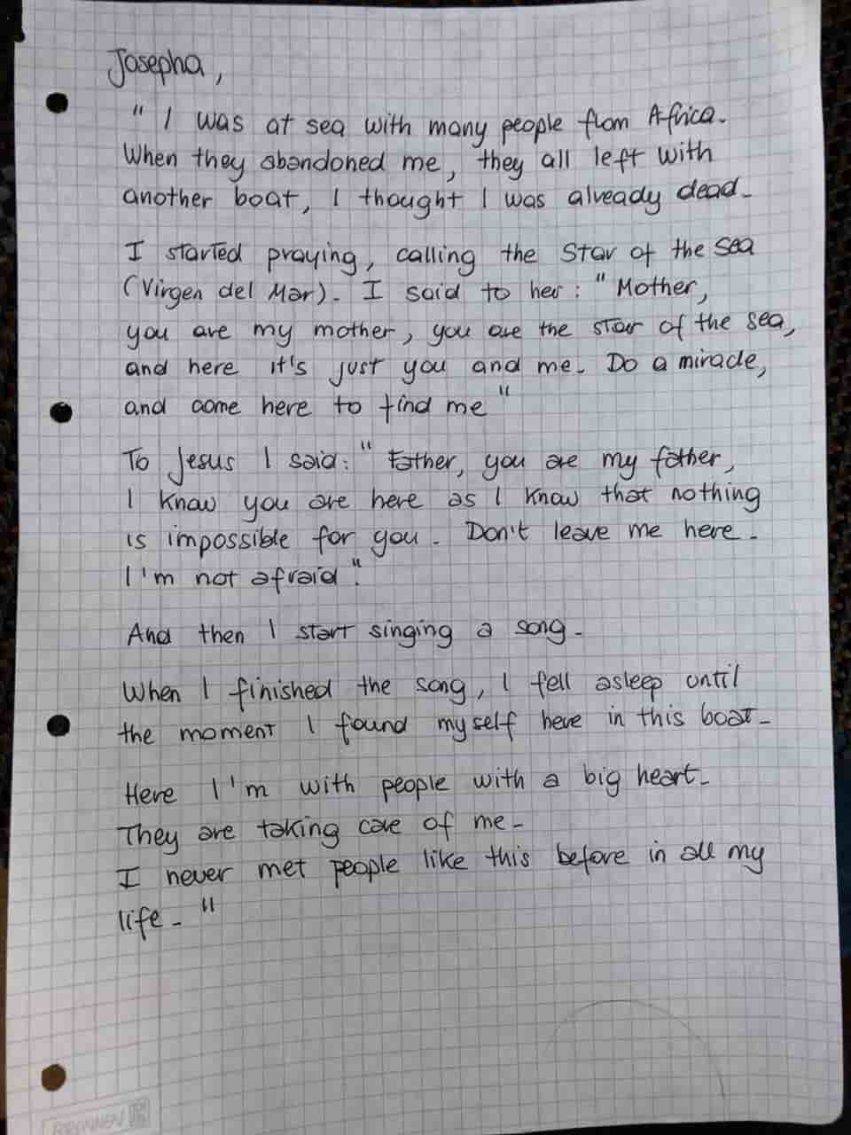 Josepha,
" I was at sea with many people from Africa.
When they abandoned me, they all left with
another boat, I thought I was already dead.
I started praying, calling the Star of the sea
(Virgen del Mar). I said to her: "Mother,
you are my mother, you are the star of the sea,
and here it's just you and me. Do a miracle,
and come here to find me"
To Jesus I said: "Father, you are my father,
I know you are here as I know that nothing
is impossible for you. Don't leave me here.
I'm not afraid".
And then I start singing a song.
When I finished the song, I fell asleep until
the moment I found myself here in this boat.
Here I'm with people with a big heart.
They are taking care of me.
I never met people like this before in all my
life. "